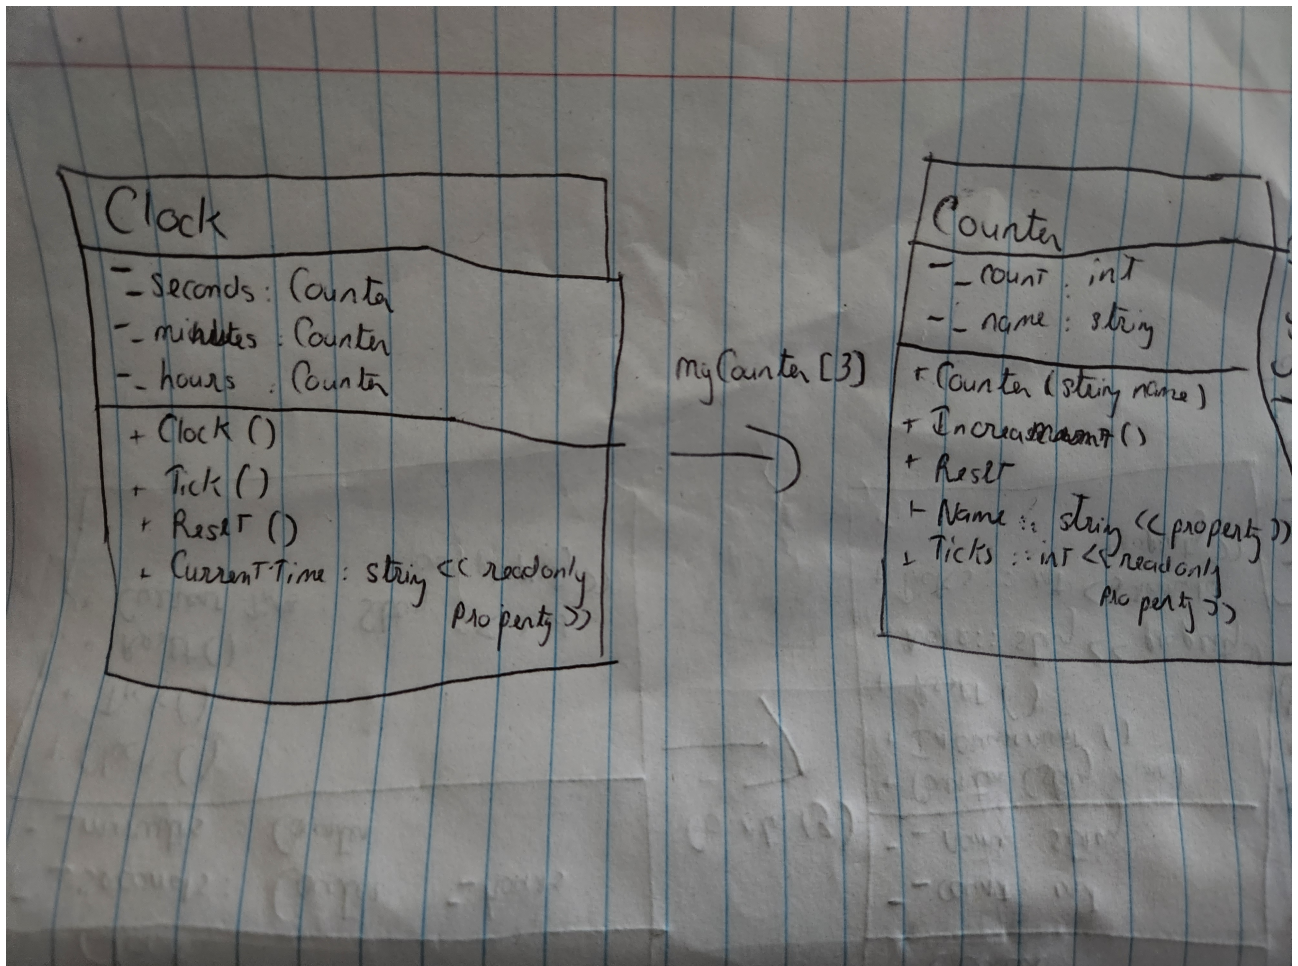 Clock
- _seconds : Counter
- _minutes : Counter
- _hours : Counter
+ Clock ()
+ Tick ()
+ Reset ()
+ CurrentTime : string << readonly
property >>
myCounter [3]
Counter
- _count : int
- _name : string
+ Counter (string name)
+ Increament ()
+ Reset
+ Name :: string << property >>
+ Ticks :: int << readonly
property >>